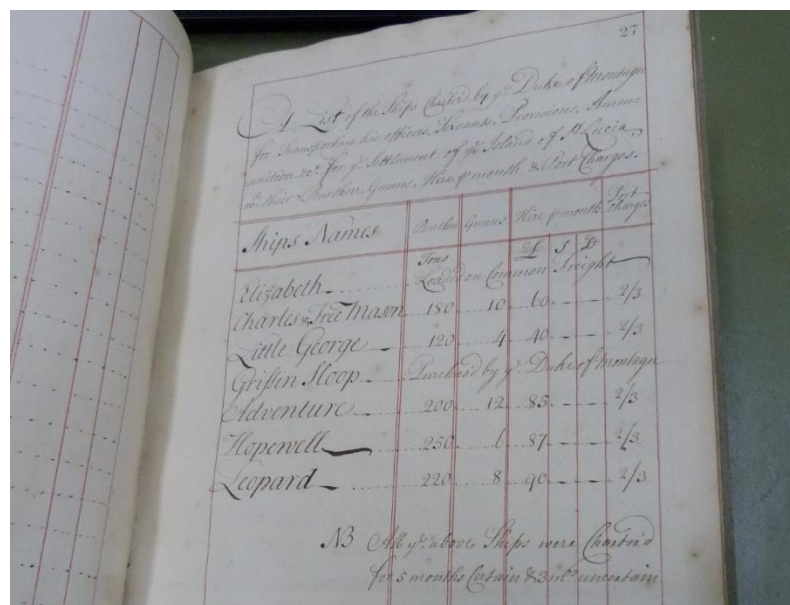 27
A List of the Ships Charterd by ye Duke of Montagu
for Transporting his officers, Servants, Provisions, Amm
unition &c. for ye Settlement of ye Island of St Lucia,
wth their Burthen Gunns, Hire p month & Port Charges.
Ships Names Burthen Gunns Hire p month Port Charges
Tons £ S D
Elizabeth Loaded on Common Freight
Charles & Free Mason 180 10 60 2/3
Little George 120 4 40 2/3
Griffin Sloop Purchas'd by ye Duke of Montagu
Adventure 200 12 85 2/3
Hopewell 250 6 87 2/3
Leopard 220 8 90 2/3
NB All ye above Ships were Charter'd
for 5 months Certain & 3 mo. uncertain